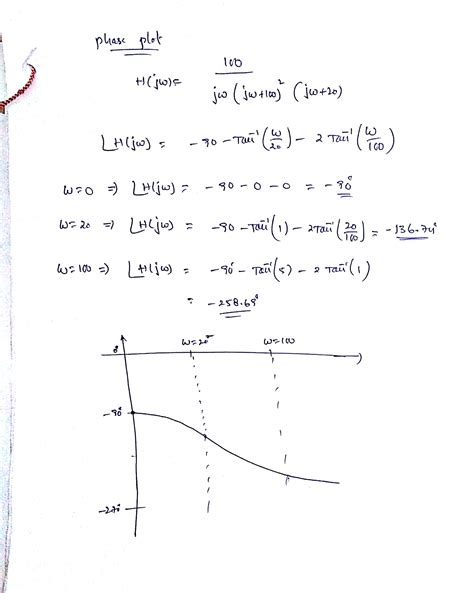 phase plot
H(jω) = 100 / jω (jω+100)² (jω+20)
∠H(jω) = -90 - Tan⁻¹(ω/20) - 2 Tan⁻¹(ω/100)
ω=0 ⇒ ∠H(jω) = -90 - 0 - 0 = -90°
ω=20 ⇒ ∠H(jω) = -90 - Tan⁻¹(1) - 2Tan⁻¹(20/100) = -136.74°
ω=100 ⇒ ∠H(jω) = -90° - Tan⁻¹(5) - 2 Tan⁻¹(1)
= -258.69°
0° ω=20 ω=100
-90°
-270°